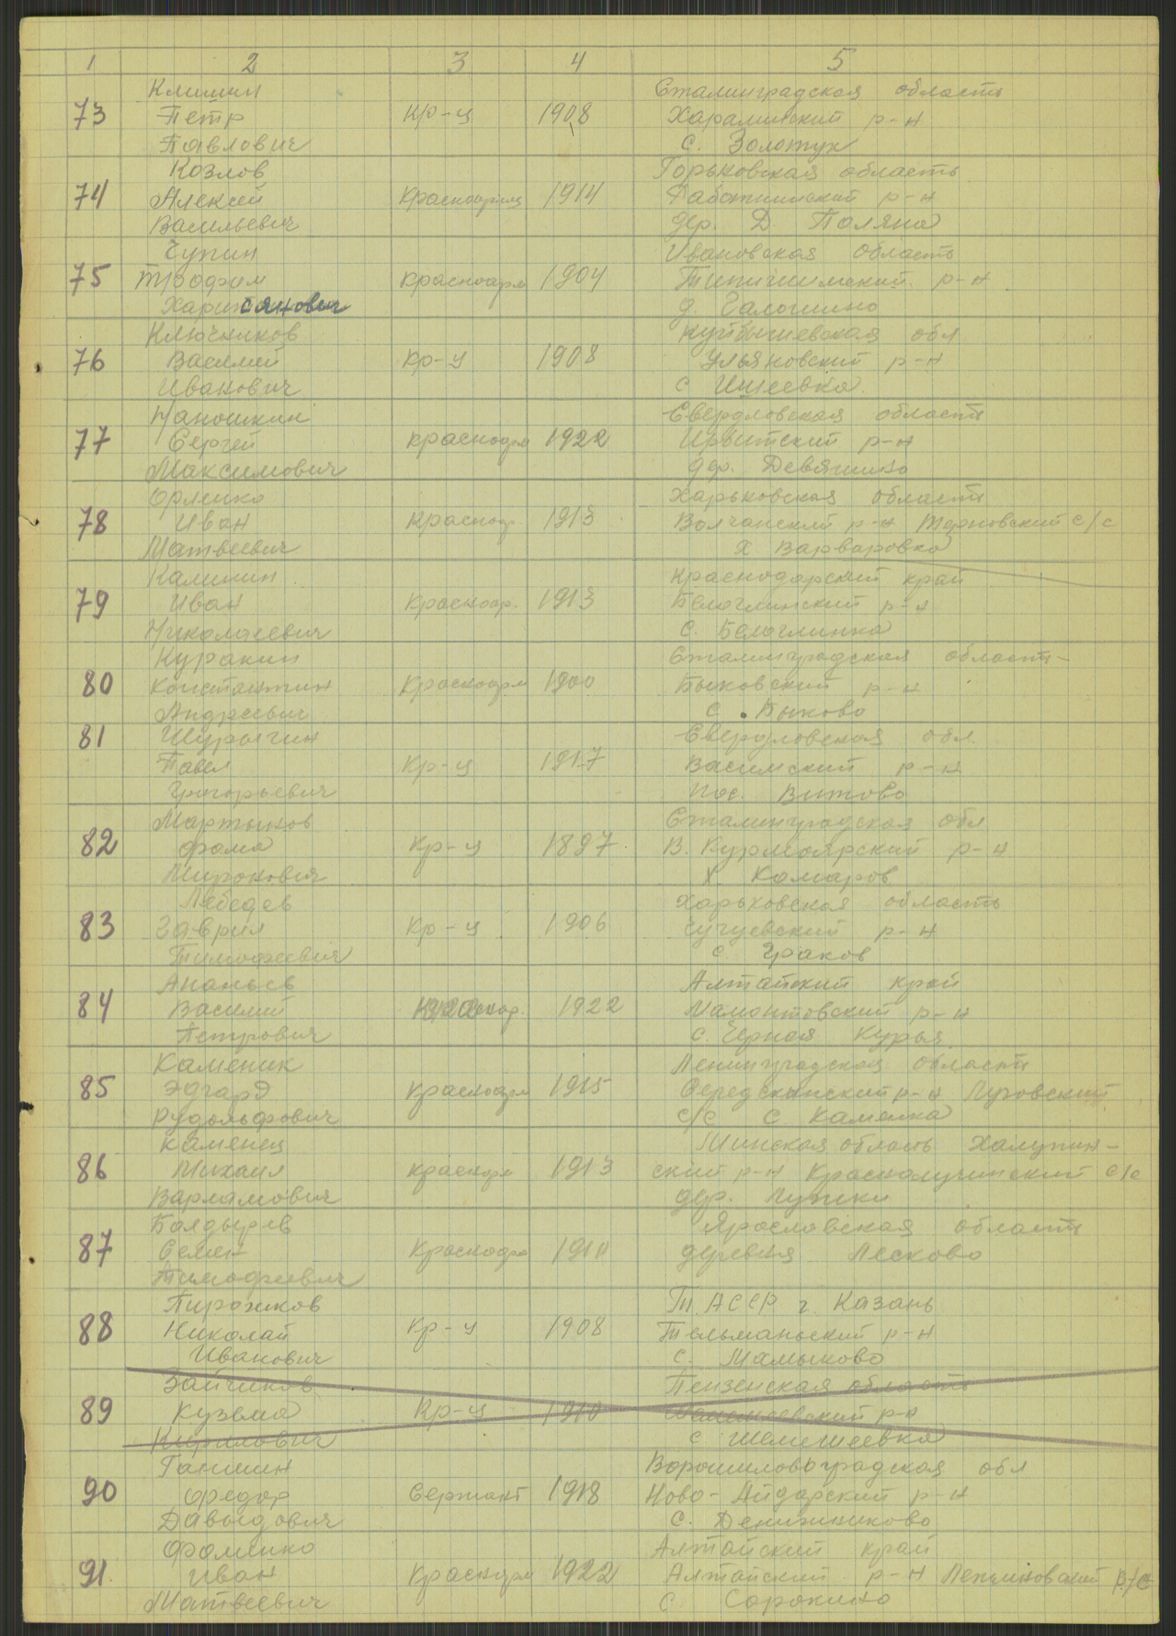 1 2 3 4 5
Климин Сталинградская область
73 Петр Кр-ц 1908 Харалинский р-н
Павлович с. Золотух
Козлов Горьковская область
74 Алексей Красноармец 1914 Работкинский р-н
Васильевич дер. Д Поляна
Чупин Ивановская область
75 Трофим Красноарм 1904 р-н
Харитонович д. Галошино
Ключников Куйбышевская обл
76 Василий Кр-ц 1908 Ульяновский р-н
Иванович с Ишеевка
Маношкин Свердловская область
77 Сергей Красноарм 1922 Ирбитский р-н
Максимович дер. Девяшино
Орленко Харьковская область
78 Иван Красноар. 1913 Волчанский р-н Терновский с/с
Матвеевич х Варваровка
Калинин Краснодарский край
79 Иван Красноар. 1913 Белоглинский р-н
Николаевич с. Белоглинка
Куракин Сталинградская область
80 Константин Красноарм 1900 Быковский р-н
Андреевич с. Быково
81 Шурыгин Свердловская обл.
Павел Кр-ц 1917 Васимский р-н
Григорьевич пос. Витово
Мартынов Сталинградская обл
82 Фома Кр-ц 1897 В. Курмоярский р-н
Миронович х. Комаров
Лебедев Харьковская область
83 Гаврил Кр-ц 1906 Чугуевский р-н
Тимофеевич с. Граков
Ананьев Алтайский край
84 Василий 1922 Мамонтовский р-н
Петрович с. Черная Курья
Каменик Ленинградская область
85 Эдгард Красноарм 1915 Середкинский р-н Луговский
Рудольфович с/с с Каменка
Каменец Минская область Халупин-
86 Михаил Красноарм 1913 ский р-н Краснолучинский с/с
Варламович дер. Лутки
Болдырев Ярославская область
87 Семен Красноарм 1911 деревня Лесково
Тимофеевич
Пирожков Т. АССР г. Казань
88 Николай Кр-ц 1908 Тельманский р-н
Иванович с. Мамыково
Зайчиков Пензенская область
89 Кузьма Кр-ц 1910 Шемышеевский р-н
Кирилович с Шемышеевка
Ганшин Ворошиловоградская обл
90 Федор Сержант 1918 Ново-Айдарский р-н
Давыдович с. Денижниково
Фоменко Алтайский край
91. Иван Красноарм 1922 Алтайский р-н
Матвеевич с Сорокино